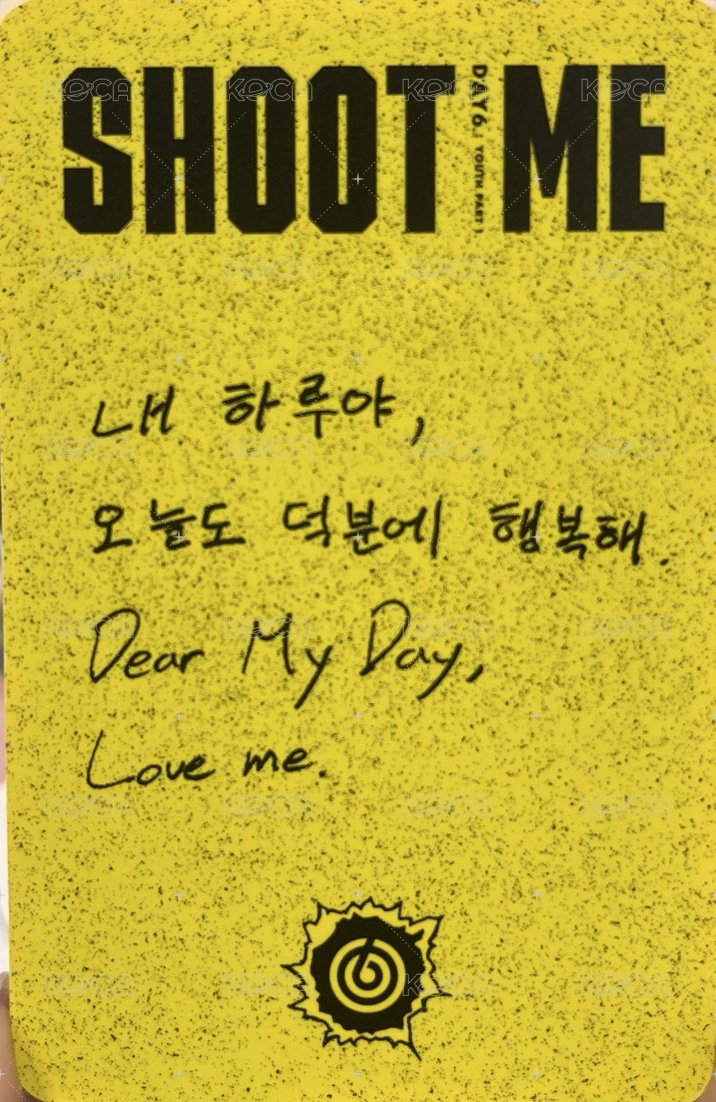 SHOOT ME
DAY6 YOUTH PART 1
내 하루야,
오늘도 덕분에 행복해.
Dear My Day,
Love me.
keca